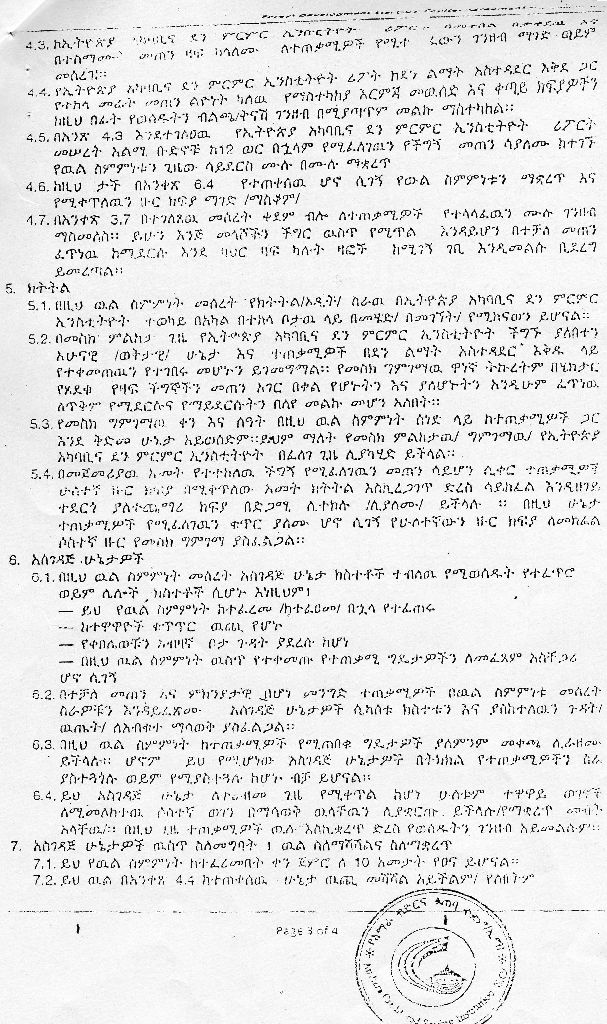 4.3. ከኢትዮጵያ አካባቢና ደን ምርምር ኢንስቲትዮት
በተስማሙት መጠን ዛፍ ካላለሙ ለተጠቃሚዎች የሚተ ገንዘብ ማገድ ወይም
መሰረዝ፡፡
4.4. የኢትዮጵያ አካባቢና ደን ምርምር ኢንስቲትዮት ሪፖት ከደን ልማት አስተዳደር እቅደ ጋር
የተከላ መሬት መጠን ልዮነት ካለዉ የማስተካከያ እርምጃ መዉሰድ እና ቀጣይ ክፍያዎችን
ከዚህ በፊት የወሰዱትን ብልጫ/ትናሽ ገንዘብ በሚያጣጥም መልኩ ማስተካከል፡፡
4.5. በአንጽ 4.3 እንደተገለፀዉ የኢትዮጵያ አካባቢና ደን ምርምር ኢንስቲትዮት ሪፖርትም
መሠረት አልሚ ቡድኖቹ ከ12 ወር በኋላም የሚፈለገዉን የችግኝ መጠን ሳያለሙ ከተገኙ
የዉል ስምምነቱን ጊዜው ሳይደርስ ሙሉ በሙሉ ማቋረጥ
4.6. ከዚህ ታች በአንቀጽ 6.4 የተጠቀሰዉ ሆኖ ሲገኝ የውል ስምምነቱን ማቋረጥ እና
የሚቀጥለዉን ዙር ክፍያ ማገድ /ማስቆም/
4.7. በአንቀጽ 3.7 በተገለጸዉ መሰረት ቀደም ብሎ ለተጠቃሚዎች የተላለፈዉን ሙሉ ገንዘብ
ማስመለስ፡፡ ይሁን እንጅ መላሾችን ችግር ዉስጥ የሚጥል እንዳይሆን በተቻለ መጠን
ፈጥነዉ ከሚደርሱ እንደ ባህር ዛፍ ካሉት ዛፎች ከሚገኝ ገቢ እንዲመልሱ ቢደረግ
ይመረጣል፡፡
5. ክትትል
5.1. በዚህ ዉል ስምምነት መሰረት የክትትል/ኦዲት/ ስራዉ በኢትዮጵያ አካባቢና ደን ምርምር
ኢንስቲትዮት ተወካይ በአካል በተከላ ቦታዉ ላይ በመሄድ/ በመገኘት/ የሚከናወን ይሆናል፡፡
5.2. በመስክ ምልከታ ጊዜ የኢትዮጵያ አካባቢና ደን ምርምር ኢንስቲትዮት ችግኙ ያለበትን
አሁናዊ /ወቅታዊ/ ሁኔታ እና ተጠቃሚዎች በደን ልማት አስተዳደር እቅዱ ላይ
የተቀመጠዉን የተገበሩ መሆኑን ይገመግማል፡፡ የመስክ ግምገማዉ ዋነኛ ትኩረትም በሄክታር
የጸደቁ የዛፍ ችግኞችን መጠን አገር በቀል የሆኑትን እና ያለሆኑትን እንዲሁም ፈጥነዉ
ለጥቅም የሚደርሱና የማይደርሱትን በለየ መልኩ መሆን አለበት፡፡
5.3. የመስክ ግምገማዉ ቀን እና ሰዓት በዚህ ዉል ስምምነት ሰነድ ላይ ከተጠቃሚዎች ጋር
እንደ ቅድመ ሁኔታ አይወሰድም፡፡ይህም ማለት የመስክ ምልከታዉ/ ግምገማዉ/ የኢትዮጵያ
አካባቢና ደን ምርምር ኢንስቲትዮት በፈለገ ጊዜ ሊያካሂድ ይችላል፡፡
5.4. በመጀመሪያዉ አመት የተተከለዉ ችግኝ የሚፈለገዉን መጠን ሳይሆን ሲቀር ተጠቃሚዎች
ሁለተኛ ዙር ክፍያ በሚቀጥለው አመት ክትትል እስኪረጋገጥ ድረስ ሳይከፈል እንዲዘገይ
ተደርጎ ያለተጨማሪ ክፍያ በድጋሚ ሊተክሉ /ሊያለሙ/ ይችላሉ ፡፡ በዚህ ሁኔታ
ተጠቃሚዎች የሚፈለገዉን ቁጥር ያለሙ ሆኖ ሲገኝ የሁለተኛውን ዙር ክፍያ ለመክፈል
ሶስተኛ ዙር የመስክ ግምገማ ያስፈልጋል፡፡
6. አስገዳጅ ሁኔታዎች
6.1. በዚህ ዉል ስምምነት መሰረት አስገዳጅ ሁኔታ ክስተቶች ተብለዉ የሚወሰዱት የተፈጥሮ
ወይም ሌሎች ክስተቶች ሲሆኑ እነዚህም፤
— ይህ የዉል ስምምነት ከተፈረመ /ካተፈፀመ/ በኋላ የተፈጠሩ
— ከተዋዋዮች ቁጥጥር ዉጪ የሆኑ
— የቀበሌዉን አብዛኛ ቦታ ጉዳት ያደረሰ ከሆነ
— በዚህ ዉል ስምምነት ዉስጥ የተቀመጡ የተጠቃሚ ግዴታዎችን ለመፈጸም አስቸጋሪ
ሆኖ ሲገኝ
6.2. በተቻለ መጠን እና ምክንያታዊ በሆነ መንግድ ተጠቃሚዎች በዉል ስምምነቱ መሰረት
ስራዎቹን እንዳይፈጽሙ አስገዳጅ ሁኔታዎች ሲከሰቱ ክስተቱን እና ያስከተለዉን ጉዳት/
ዉጤት/ ለአብቁተ ማሳወቅ ያስፈልጋል፡፡
6.3. በዚህ ዉል ስምምነት ከተጠቃሚዎች የሚጠበቁ ግዴታዎች ያለምንም መቀጫ ሊራዘሙ
ይችላሉ፡፡ ሆኖም ይህ የሚሆነው አስገዳጅ ሁኔታዎች በትክክል የተጠቃሚዎችን ስራ
ያስተጓጎሉ ወይም የሚያስተጓጉሉ ከሆኑ ብቻ ይሆናል፡፡
6.4. ይህ አስገዳጅ ሁኔታ ለተራዘመ ጊዜ የሚቀጥል ከሆነ ሁለቱም ተዋዋይ ወገኖች
ለሚመለከተዉ ሶስተኛ ወገን በማሳወቅ ዉላቸዉን ሊያቋርጡ ይችላሉ/የማቋረጥ መብት
አላቸዉ/፡፡ በዚህ ጊዜ ተጠቃሚዎች ዉሉ እስኪቋረጥ ድረስ የወሰዱትን ገንዘብ አይመልሱም፡፡
7. አስገዳጅ ሁኔታዎች ዉስጥ ስለመግባት ፤ ዉል ስለማሻሻልና ስለማቋረጥ
7.1. ይህ የዉል ስምምነት ከተፈረመበት ቀን ጀምሮ ለ 10 አመታት የፀና ይሆናል፡፡
7.2. ይህ ዉል በአንቀጽ 4.4 ከተጠቀሰዉ ሁኔታ ዉጪ መሻሻል አይችልም/ የለበትም
Page 3 of 4